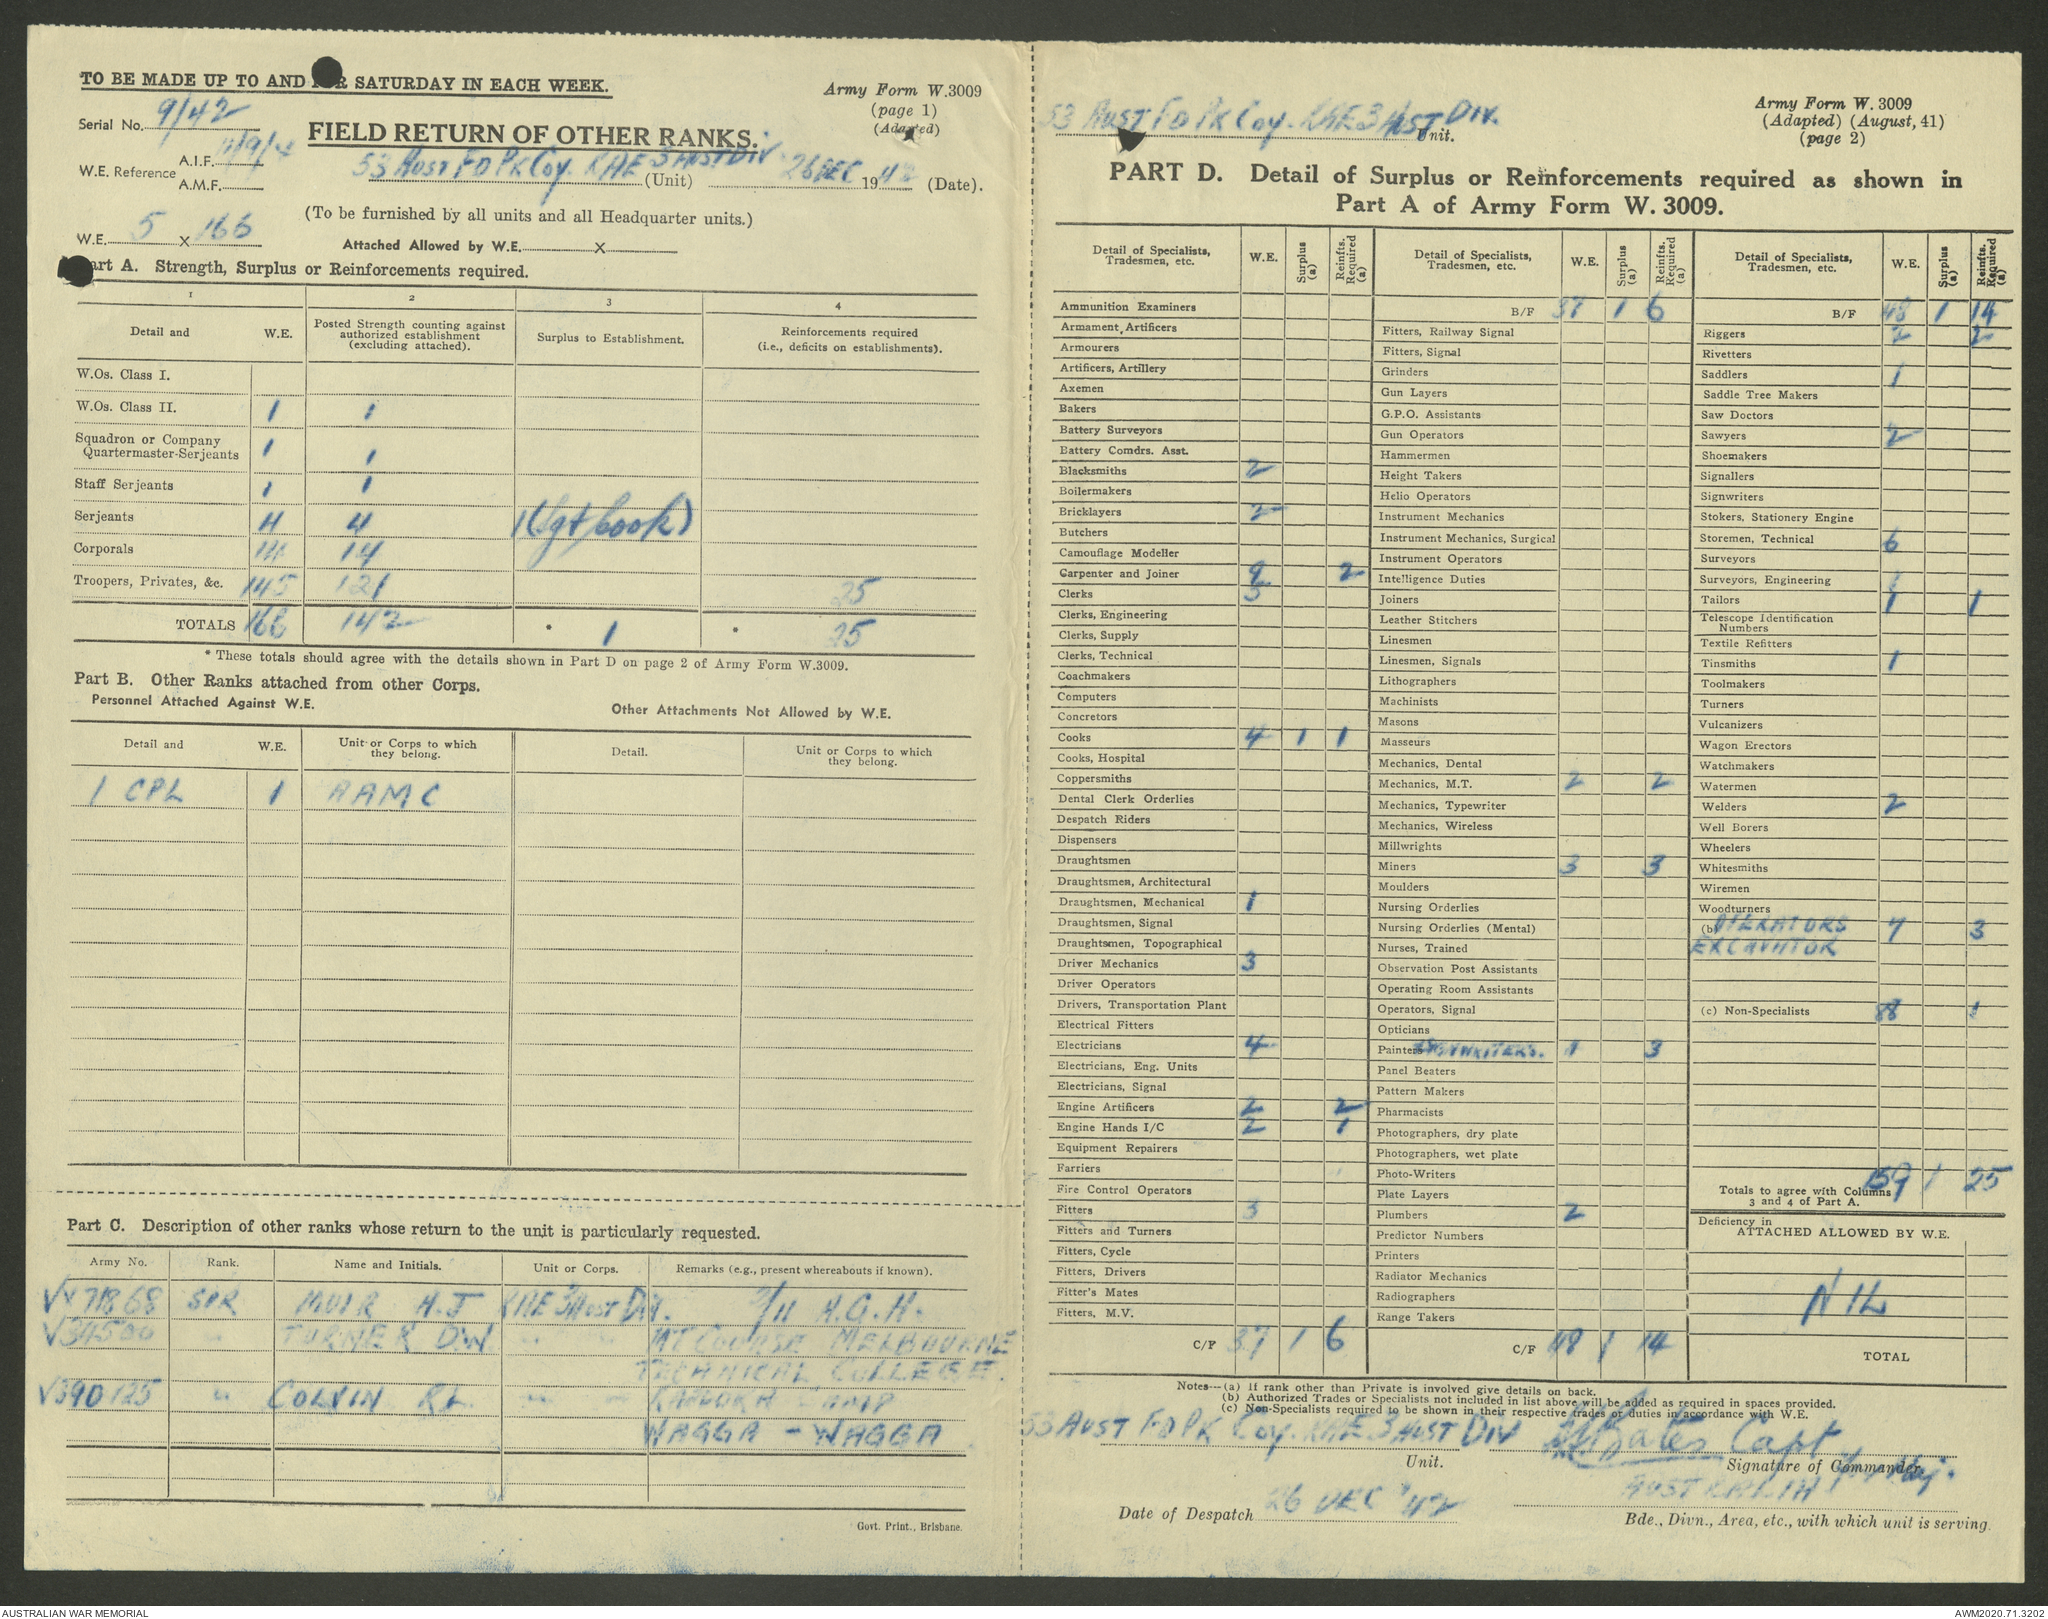 TO BE MADE UP TO AND FOR SATURDAY IN EACH WEEK.
Army Form W.3009
(page 1)
(Adapted)
Serial No. 9/42
FIELD RETURN OF OTHER RANKS.
W.E. Reference A.I.F.
A.M.F.
53 AUST FD PK Coy. RAE 3 AUST DIV (Unit) 26 DEC 1942 (Date).
(To be furnished by all units and all Headquarter units.)
W.E. 5 x 166
Attached Allowed by W.E. x
Part A. Strength, Surplus or Reinforcements required.
1 2 3 4
Detail and W.E. Posted Strength counting against authorized establishment (excluding attached). Surplus to Establishment. Reinforcements required (i.e., deficits on establishments).
W.Os. Class I.
W.Os. Class II. 1 1
Squadron or Company
Quartermaster-Serjeants 1 1
Staff Serjeants 1 1
Serjeants 4 4 1 (Sgt/Cook)
Corporals 14 14
Troopers, Privates, &c. 145 121 25
TOTALS 166 142 * 1 * 25
* These totals should agree with the details shown in Part D on page 2 of Army Form W.3009.
Part B. Other Ranks attached from other Corps.
Personnel Attached Against W.E. Other Attachments Not Allowed by W.E.
Detail and W.E. Unit or Corps to which they belong. Detail. Unit or Corps to which they belong.
1 CPL 1 AAMC
Part C. Description of other ranks whose return to the unit is particularly requested.
Army No. Rank. Name and Initials. Unit or Corps. Remarks (e.g., present whereabouts if known).
VX71868 SPR MUIR H.J RAE 3 AUST DIV. 2/11 A.G.H.
V34500 " TURNER D.W. " " MT COURSE MELBOURNE
TECHNICAL COLLEGE.
V390125 " COLVIN R.L. " " KAPOOKA CAMP
WAGGA - WAGGA
Govt. Print., Brisbane.
53 AUST FD PK Coy. RAE 3 AUST DIV. Unit.
Army Form W. 3009
(Adapted) (August, 41)
(page 2)
PART D. Detail of Surplus or Reinforcements required as shown in
Part A of Army Form W. 3009.
Detail of Specialists, Tradesmen, etc. W.E. Surplus (a) Reinfts. Required (a)
Ammunition Examiners
Armament Artificers
Armourers
Artificers, Artillery
Axemen
Bakers
Battery Surveyors
Battery Comdrs. Asst.
Blacksmiths 2
Boilermakers
Bricklayers 2
Butchers
Camouflage Modeller
Carpenter and Joiner 9 2
Clerks 5
Clerks, Engineering
Clerks, Supply
Clerks, Technical
Coachmakers
Computers
Concretors
Cooks 4 1 1
Cooks, Hospital
Coppersmiths
Dental Clerk Orderlies
Despatch Riders
Dispensers
Draughtsmen
Draughtsmen, Architectural
Draughtsmen, Mechanical 1
Draughtsmen, Signal
Draughtsmen, Topographical
Driver Mechanics 3
Driver Operators
Drivers, Transportation Plant
Electrical Fitters
Electricians 4
Electricians, Eng. Units
Electricians, Signal
Engine Artificers 2 2
Engine Hands I/C 2 1
Equipment Repairers
Farriers
Fire Control Operators
Fitters 3
Fitters and Turners
Fitters, Cycle
Fitters, Drivers
Fitter's Mates
Fitters, M.V.
C/F 37 1 6
Detail of Specialists, Tradesmen, etc. W.E. Surplus (a) Reinfts. Required (a)
B/F 37 1 6
Fitters, Railway Signal
Fitters, Signal
Grinders
Gun Layers
G.P.O. Assistants
Gun Operators
Hammermen
Height Takers
Helio Operators
Instrument Mechanics
Instrument Mechanics, Surgical
Instrument Operators
Intelligence Duties
Joiners
Leather Stitchers
Linesmen
Linesmen, Signals
Lithographers
Machinists
Masons
Masseurs
Mechanics, Dental
Mechanics, M.T. 2 2
Mechanics, Typewriter
Mechanics, Wireless
Millwrights
Miners 3 3
Moulders
Nursing Orderlies
Nursing Orderlies (Mental)
Nurses, Trained
Observation Post Assistants
Operating Room Assistants
Operators, Signal
Opticians
Painters SIGNWRITERS. 3
Panel Beaters
Pattern Makers
Pharmacists
Photographers, dry plate
Photographers, wet plate
Photo-Writers
Plate Layers
Plumbers 2
Predictor Numbers
Printers
Radiator Mechanics
Radiographers
Range Takers
C/F 48 1 14
Detail of Specialists, Tradesmen, etc. W.E. Surplus (a) Reinfts. Required (a)
B/F 48 1 14
Riggers 2 2
Rivetters
Saddlers 1
Saddle Tree Makers
Saw Doctors
Sawyers 2
Shoemakers
Signallers
Signwriters
Stokers, Stationery Engine
Storemen, Technical 6
Surveyors
Surveyors, Engineering 1
Tailors 1 1
Telescope Identification
Numbers
Textile Refitters
Tinsmiths 1
Toolmakers
Turners
Vulcanizers
Wagon Erectors
Watchmakers
Watermen
Welders 2
Well Borers
Wheelers
Whitesmiths
Wiremen
Woodturners
(b) OPERATORS 7 3
EXCAVATOR
(c) Non-Specialists 88 1
Totals to agree with Columns 3 and 4 of Part A. 159 1 25
Deficiency in
ATTACHED ALLOWED BY W.E.
NIL
TOTAL
Notes—(a) If rank other than Private is involved give details on back.
(b) Authorized Trades or Specialists not included in list above will be added as required in spaces provided.
(c) Non-Specialists required to be shown in their respective trades or duties in accordance with W.E.
53 AUST FD PK Coy. RAE 3 AUST DIV Bates Capt
Unit. Signature of Commander.
AUSTRALIA
Date of Despatch 26 DEC '42
Bde., Divn., Area, etc., with which unit is serving.
AUSTRALIAN WAR MEMORIAL
AWM2020.71.3202